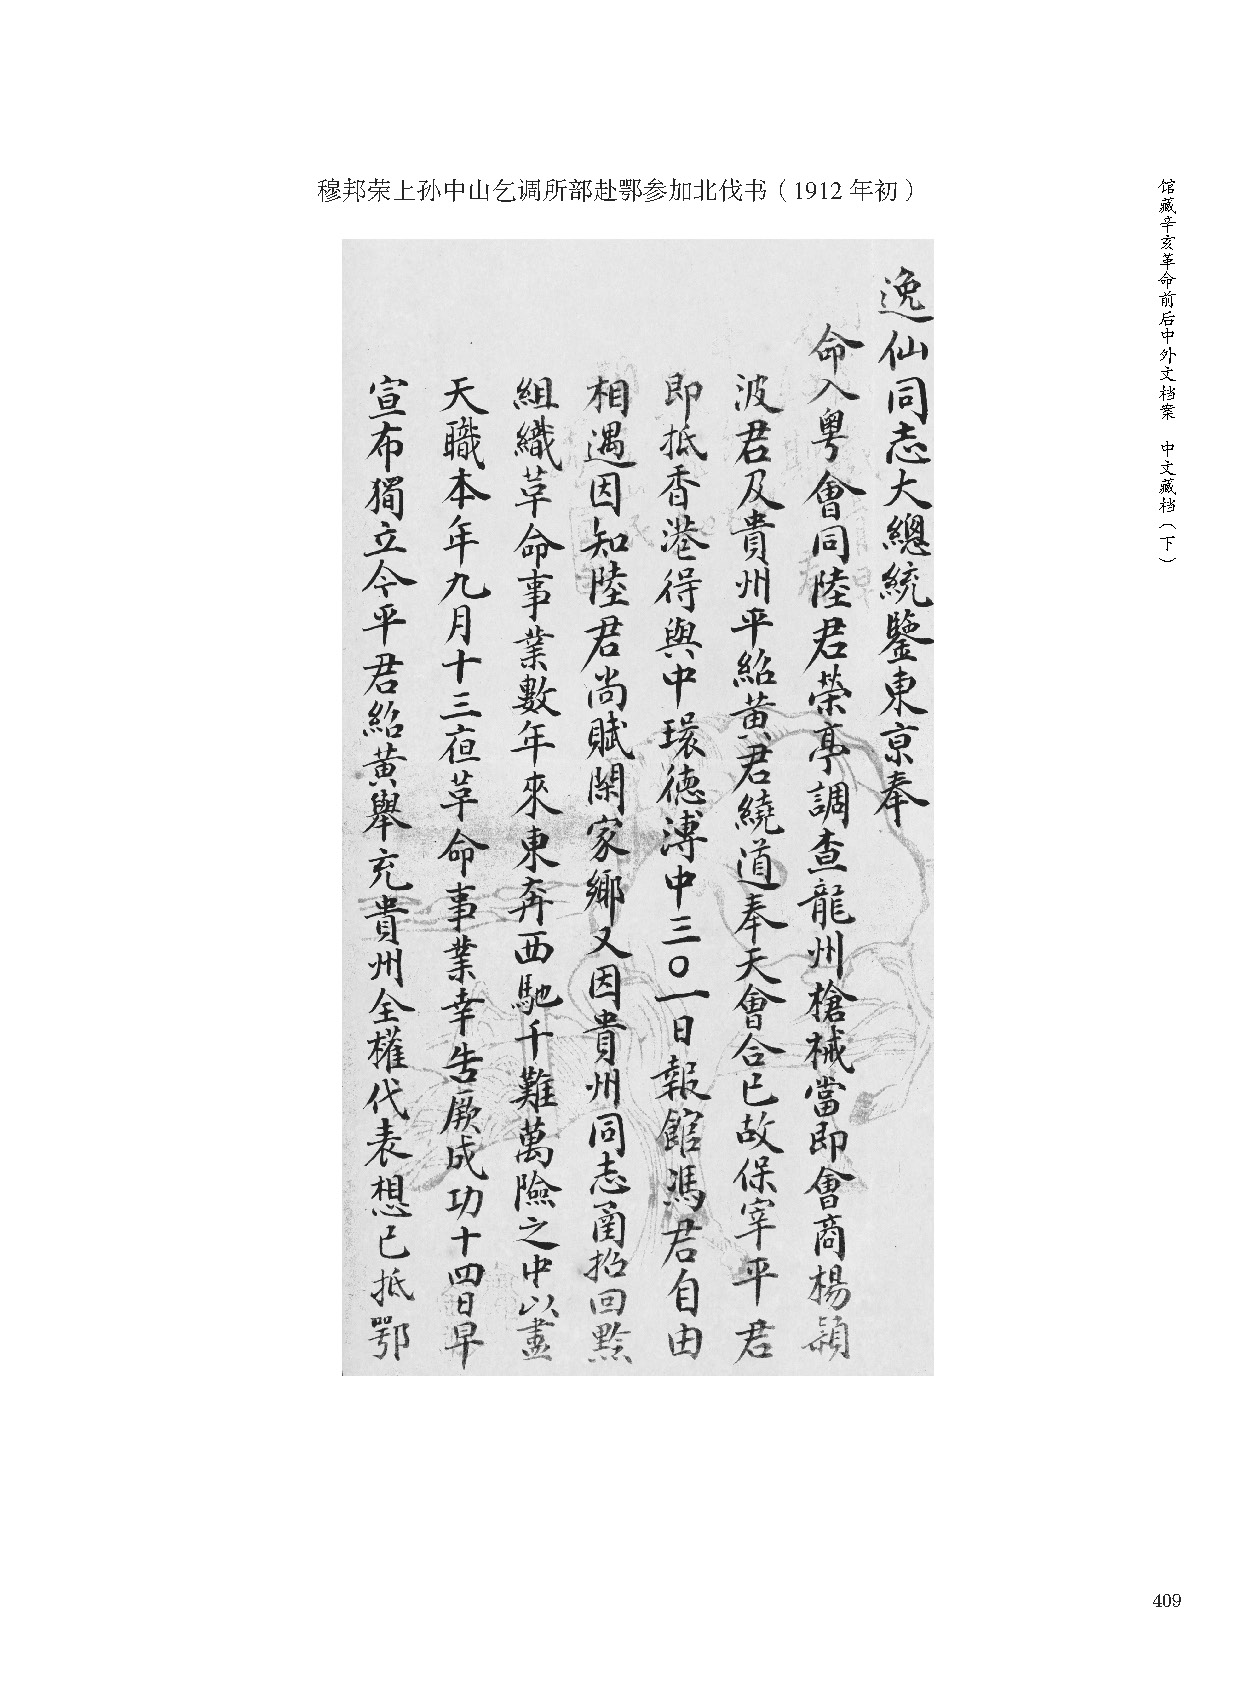 穆邦荣上孙中山乞调所部赴鄂参加北伐书（1912年初）
馆藏辛亥革命前后中外文档案 中文藏档（下）
逸仙同志大總統鑒東京奉
命入粤會同陸君榮亭調查龍州槍械當即會商楊穎
波君及貴州平紹黃君繞道奉天會合已故保宰平君
即抵香港得與中環德溥中三〇一日報館馮君自由
相遇因知陸君尚賦閑家鄉又因貴州同志函招回黔
組織革命事業數年來東奔西馳千難萬險之中以盡
天職本年九月十三夜革命事業幸告厥成功十四日早
宣布獨立今平君紹黃舉充貴州全權代表想已抵鄂
409